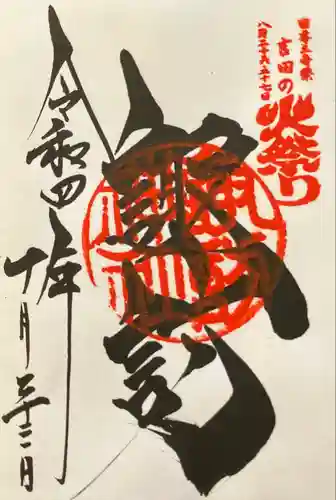 日本三奇祭
吉田の
火祭り
八月二十六二十七日
諏訪
令和四年
十月二十二日